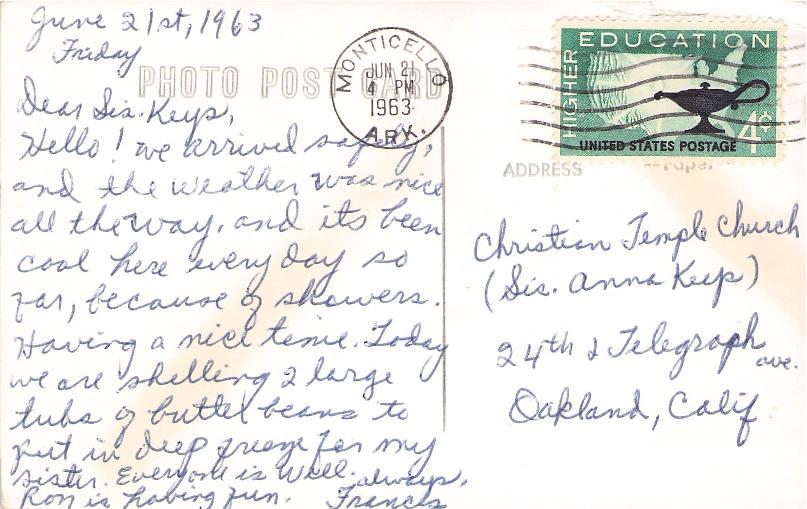 June 21st, 1963
Friday
PHOTO POST CARD
MONTICELLO
JUN 21
4 PM
1963
ARK.
HIGHER EDUCATION
4¢
UNITED STATES POSTAGE
Dear Sis. Keys,
Hello! we arrived safely,
and the weather was nice
all the way, and its been
cool here every day so
far, because of showers.
Having a nice time. Today
we are shelling 2 large
tubs of butter beans to
put in deep freeze for my
sister. Everyone is well.
Ron is having fun.
always,
Frances
ADDRESS
Christian Temple Church
(Sis. Anna Keys)
24th & Telegraph
ave.
Oakland, Calif.